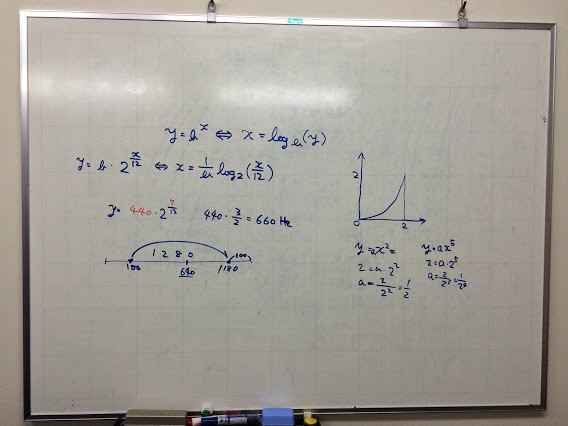 y = b^x ⇔ x = log_b(y)
y = b · 2^(x/12) ⇔ x = 1/b log₂(x/12)
y = 440 · 2^(7/12) 440 · 3/2 = 660 Hz
1 2 8 0 100
100 640 1180
2
0 2
y = ax² = y = ax⁵
2 = a · 2² 2 = a · 2⁵
a = 2/2² = 1/2 a = 2/2⁵ = 1/2⁴